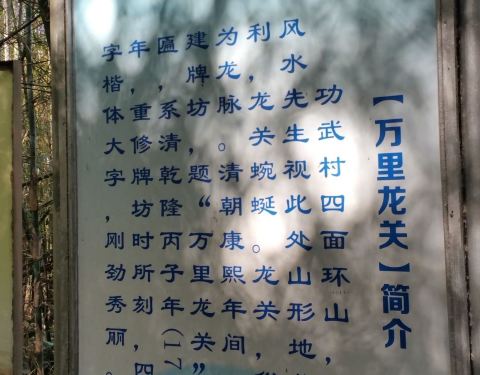 【万里龙关】简介
功武村四面环山,
风水先生视此处山形地
利,龙关蜿蜒。龙关,
为龙脉。清朝康熙年间,
建牌坊,题“万里龙关”
匾,系清乾隆丙子年(17
年,重修牌坊时所刻,四
字楷体大字,刚劲秀丽。